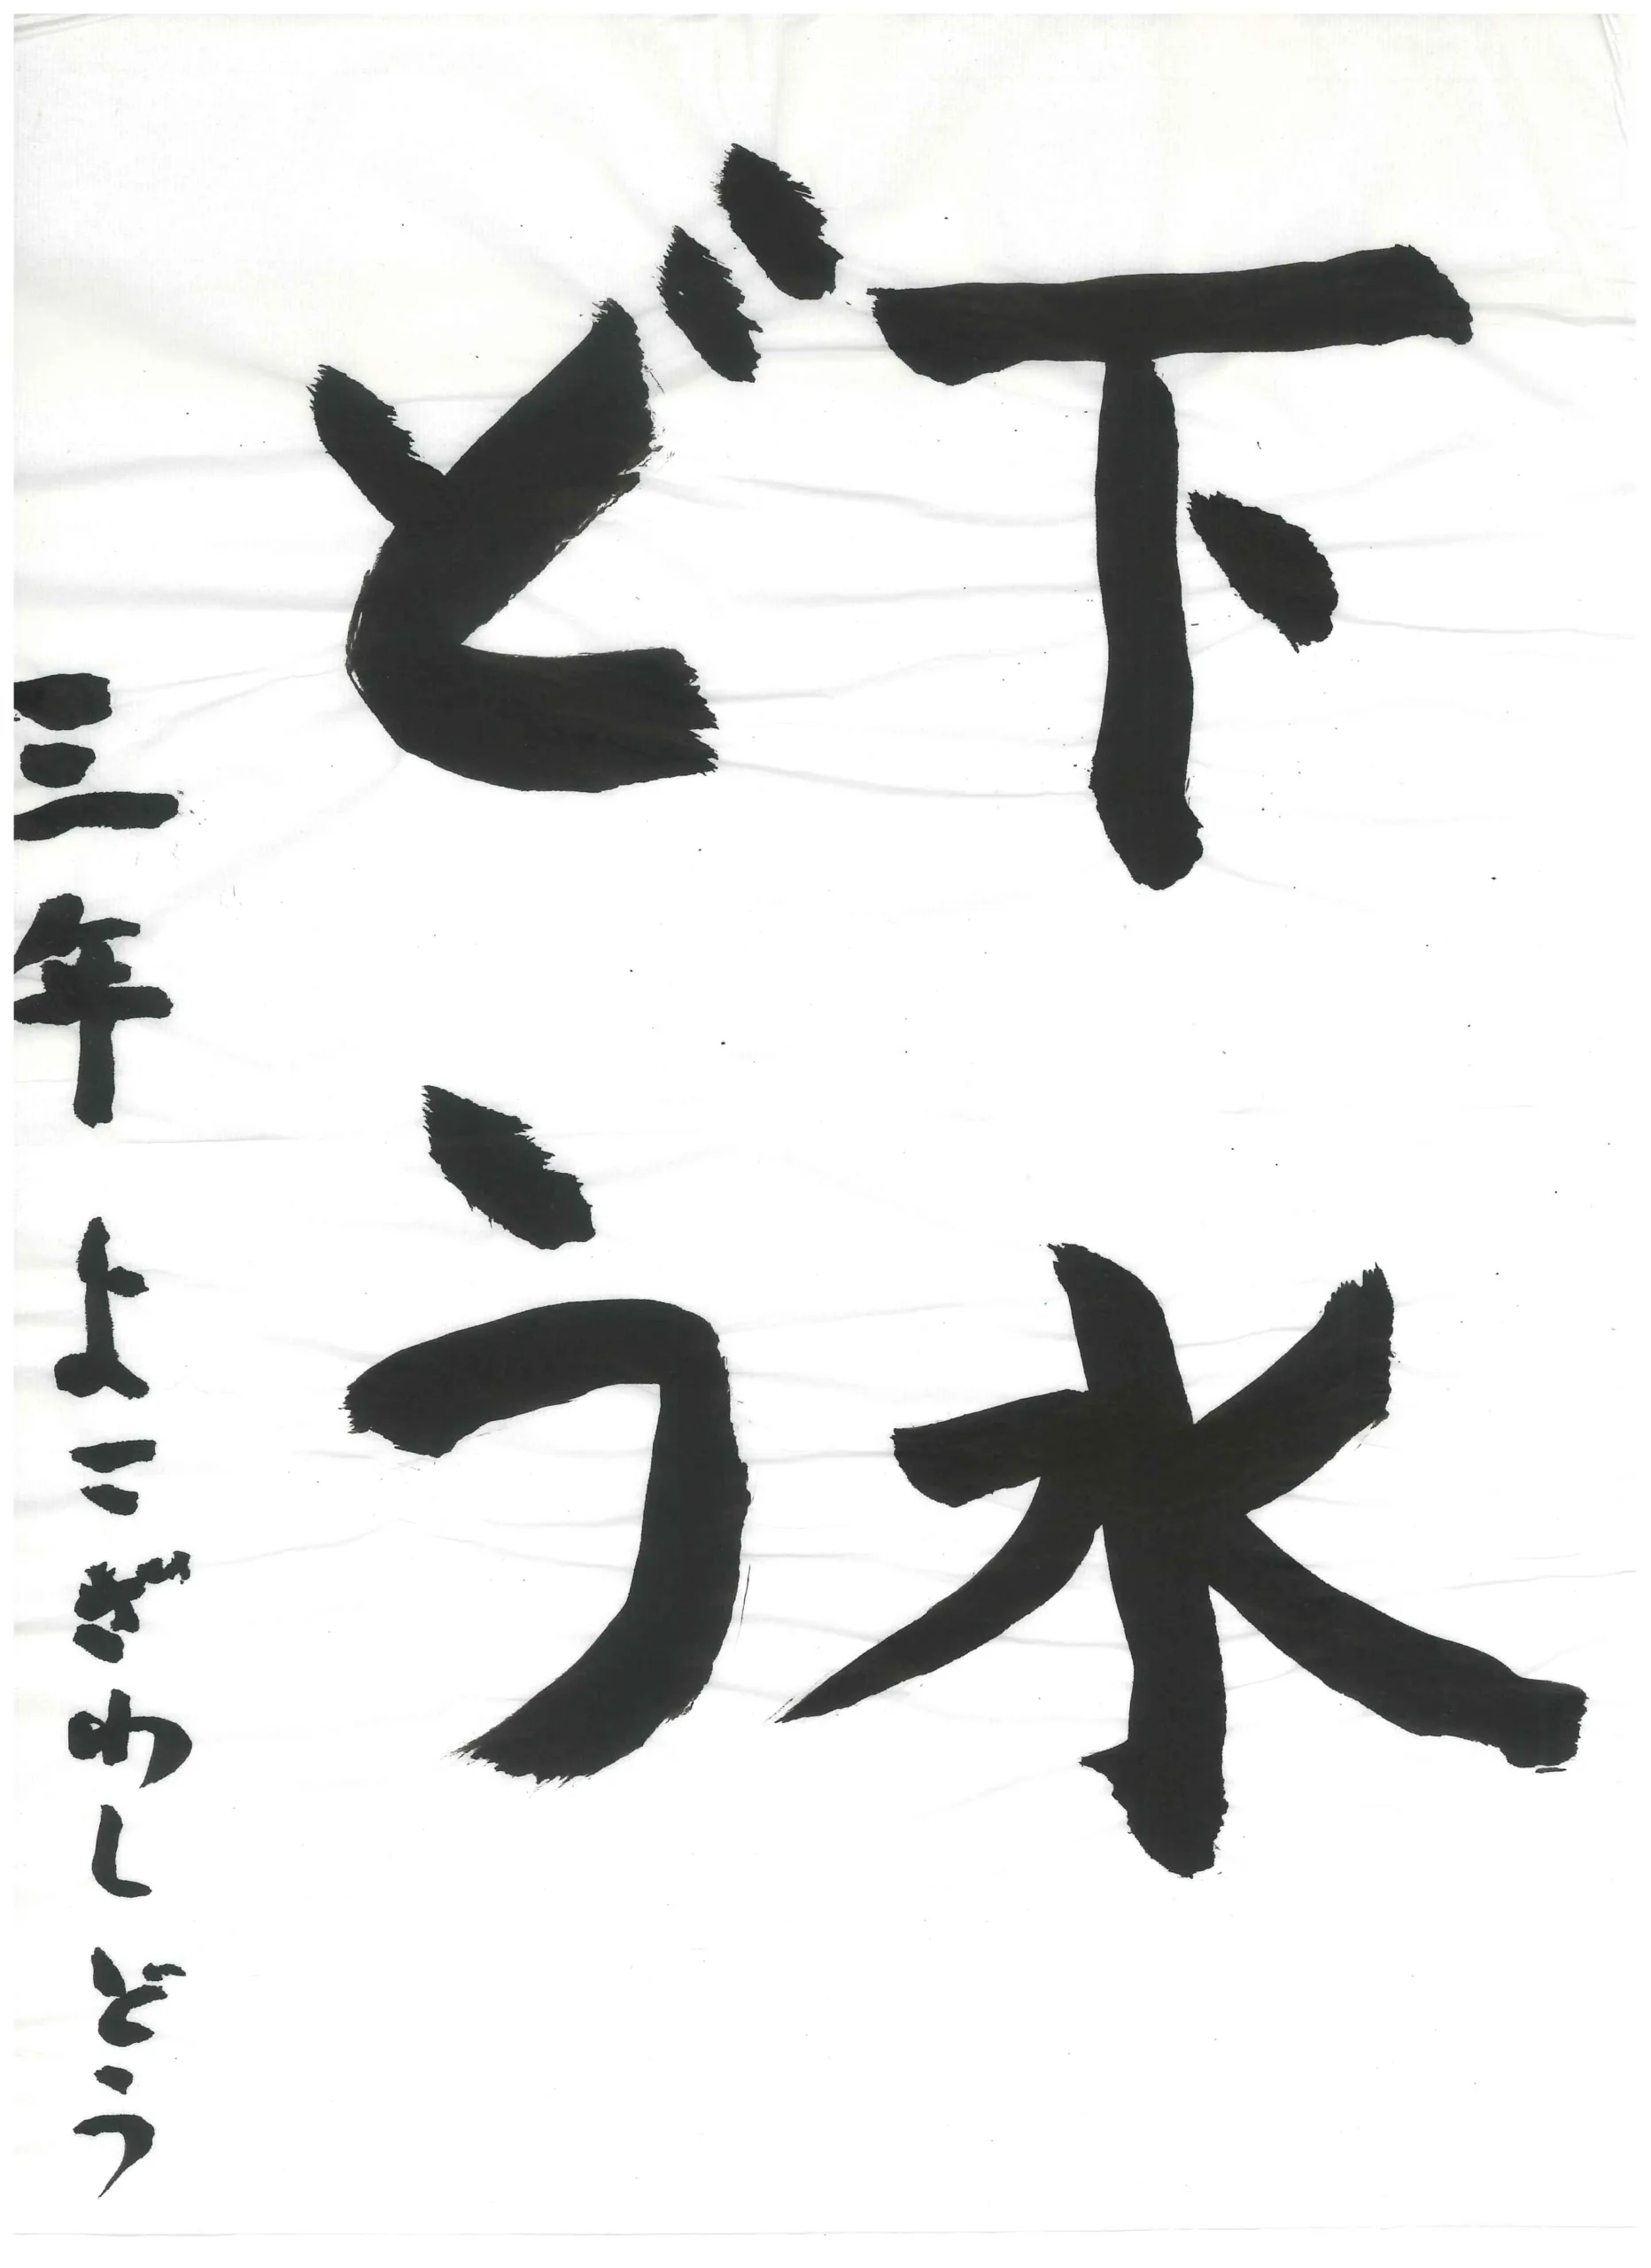 下水
どう
三年 よこざわしどう